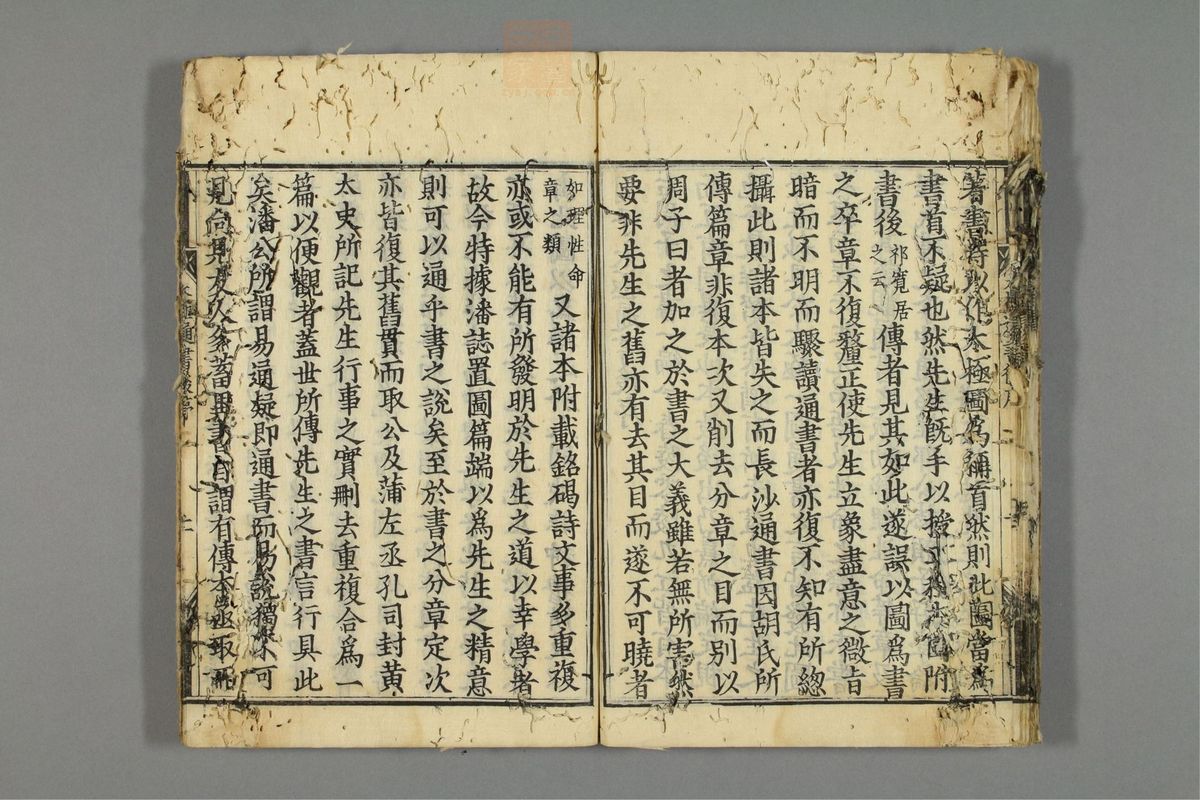 著書特以作太極圖爲稱首然則此圖當爲
書首不疑也然先生既手以授二程本因附
書後祁寬居之云傳者見其如此遂誤以圖爲書
之卒章不復釐正使先生立象盡意之微旨
暗而不明而驟讀通書者亦復不知有所總
攝此則諸本皆失之而長沙通書因胡氏所
傳篇章非復本次又削去分章之目而別以
周子曰者加之於書之大義雖若無所害然
要非先生之舊亦有去其目而遂不可曉者
如理性命章之類又諸本附載銘碣詩文事多重複
亦或不能有所發明於先生之道以幸學者
故今特據潘誌置圖篇端以爲先生之精意
則可以通乎書之說矣至於書之分章定次
亦皆復其舊貫而取公及蒲左丞孔司封黃
太史所記先生行事之實刪去重複合爲一
篇以便觀者蓋世所傳先生之書言行具此
矣潘公所謂易通疑即通書而易說獨不可
見向見友人多蓄異書自謂有傳本亟取而